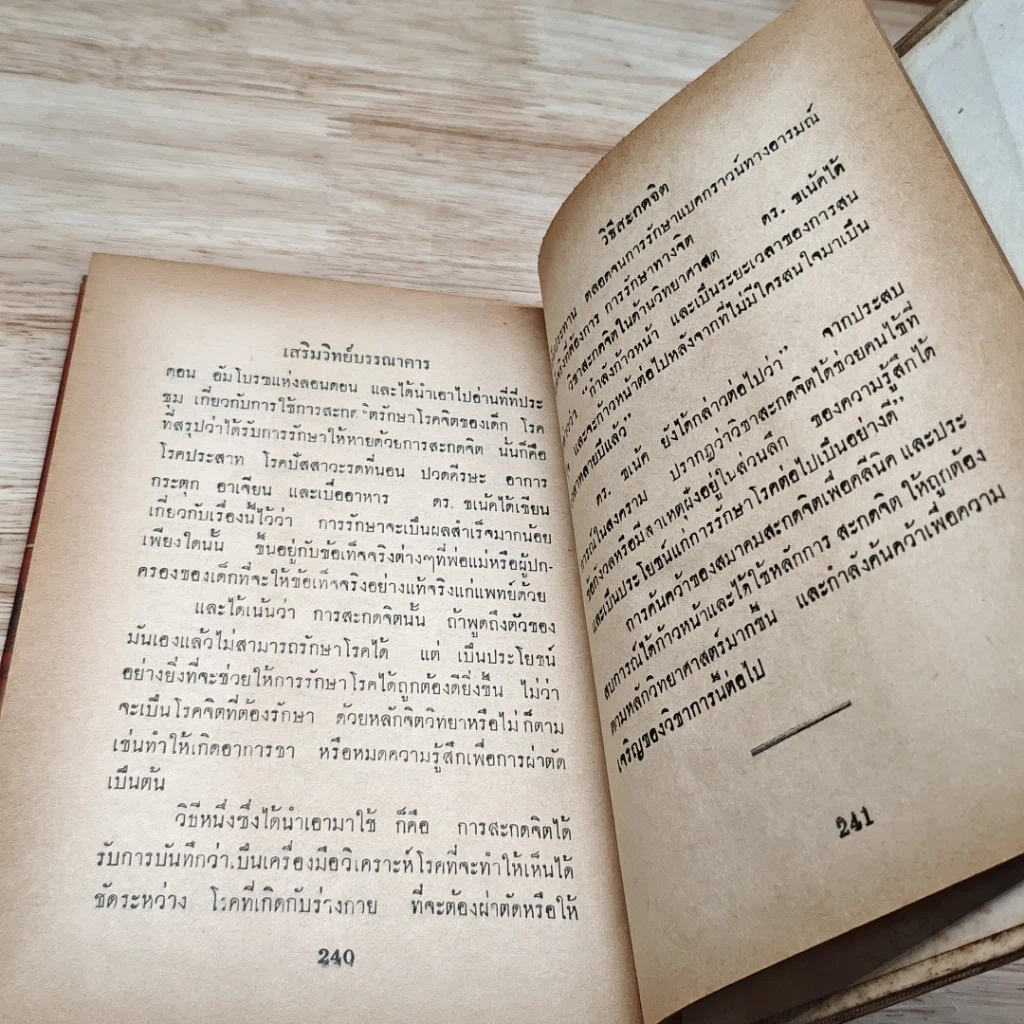 เสริมวิทย์บรรณาคาร
ตอน อัมโบรซแห่งลอนดอน และได้นำเอาไปอ่านที่ที่ประ
ชุม เกี่ยวกับการใช้การสะกดจิตรักษาโรคจิตของเด็ก โรค
ที่สรุปว่าได้รับการรักษาให้หายด้วยการสะกดจิต นั้นก็คือ
โรคประสาท โรคปัสสาวะรดที่นอน ปวดศีรษะ อาการ
กระตุก อาเจียน และเบื่ออาหาร ดร. ชเน้คได้เขียน
เกี่ยวกับเรื่องนี้ไว้ว่า การรักษาจะเป็นผลสำเร็จมากน้อย
เพียงใดนั้น ขึ้นอยู่กับข้อเท็จจริงต่างๆที่พ่อแม่หรือผู้ปก-
ครองของเด็กที่จะให้ข้อเท็จจริงอย่างแท้จริงแก่แพทย์ด้วย
และได้เน้นว่า การสะกดจิตนั้น ถ้าพูดถึงตัวของ
มันเองแล้วไม่สามารถรักษาโรคได้ แต่ เป็นประโยชน์
อย่างยิ่งที่จะช่วยให้การรักษาโรคได้ถูกต้องดียิ่งขึ้น ไม่ว่า
จะเป็นโรคจิตที่ต้องรักษา ด้วยหลักจิตวิทยาหรือไม่ก็ตาม
เช่นทำให้เกิดอาการชา หรือหมดความรู้สึกเพื่อการผ่าตัด
เป็นต้น
วิธีหนึ่งซึ่งได้นำเอามาใช้ ก็คือ การสะกดจิตได้
รับการบันทึกว่าเป็นเครื่องมือวิเคราะห์โรคที่จะทำให้เห็นได้
ชัดระหว่าง โรคที่เกิดกับร่างกาย ที่จะต้องผ่าตัดหรือให้
240
วิธีสะกดจิต
ตลอดจนการรักษาแบคกราวน์ทางอารมณ์
ต้องการ การรักษาทางจิต
วิชาสะกดจิตในด้านวิทยาศาสต ดร. ชเน้คได้
ว่า "กำลังก้าวหน้า และเป็นระยะเวลาของการสน
และจะก้าวหน้าต่อไปหลังจากที่ไม่มีใครสนใจมาเป็น
หลายปีแล้ว"
ดร. ชเน้ค ยังได้กล่าวต่อไปว่า" จากประสบ
การณ์ในสงคราม ปรากฏว่าวิชาสะกดจิตได้ช่วยคนไข้ที่
วิตกกังวลหรือมีสาเหตุฝังอยู่ในส่วนลึก ของความรู้สึกได้
และเป็นประโยชน์แก่การรักษาโรคต่อไปเป็นอย่างดี"
การค้นคว้าของสมาคมสะกดจิตเพื่อคลีนิค และประ
สบการณ์ได้ก้าวหน้าและได้ใช้หลักการ สะกดจิต ให้ถูกต้อง
ตามหลักวิทยาศาสตร์มากขึ้น และกำลังค้นคว้าเพื่อความ
เจริญของวิชาการนี้ต่อไป
241